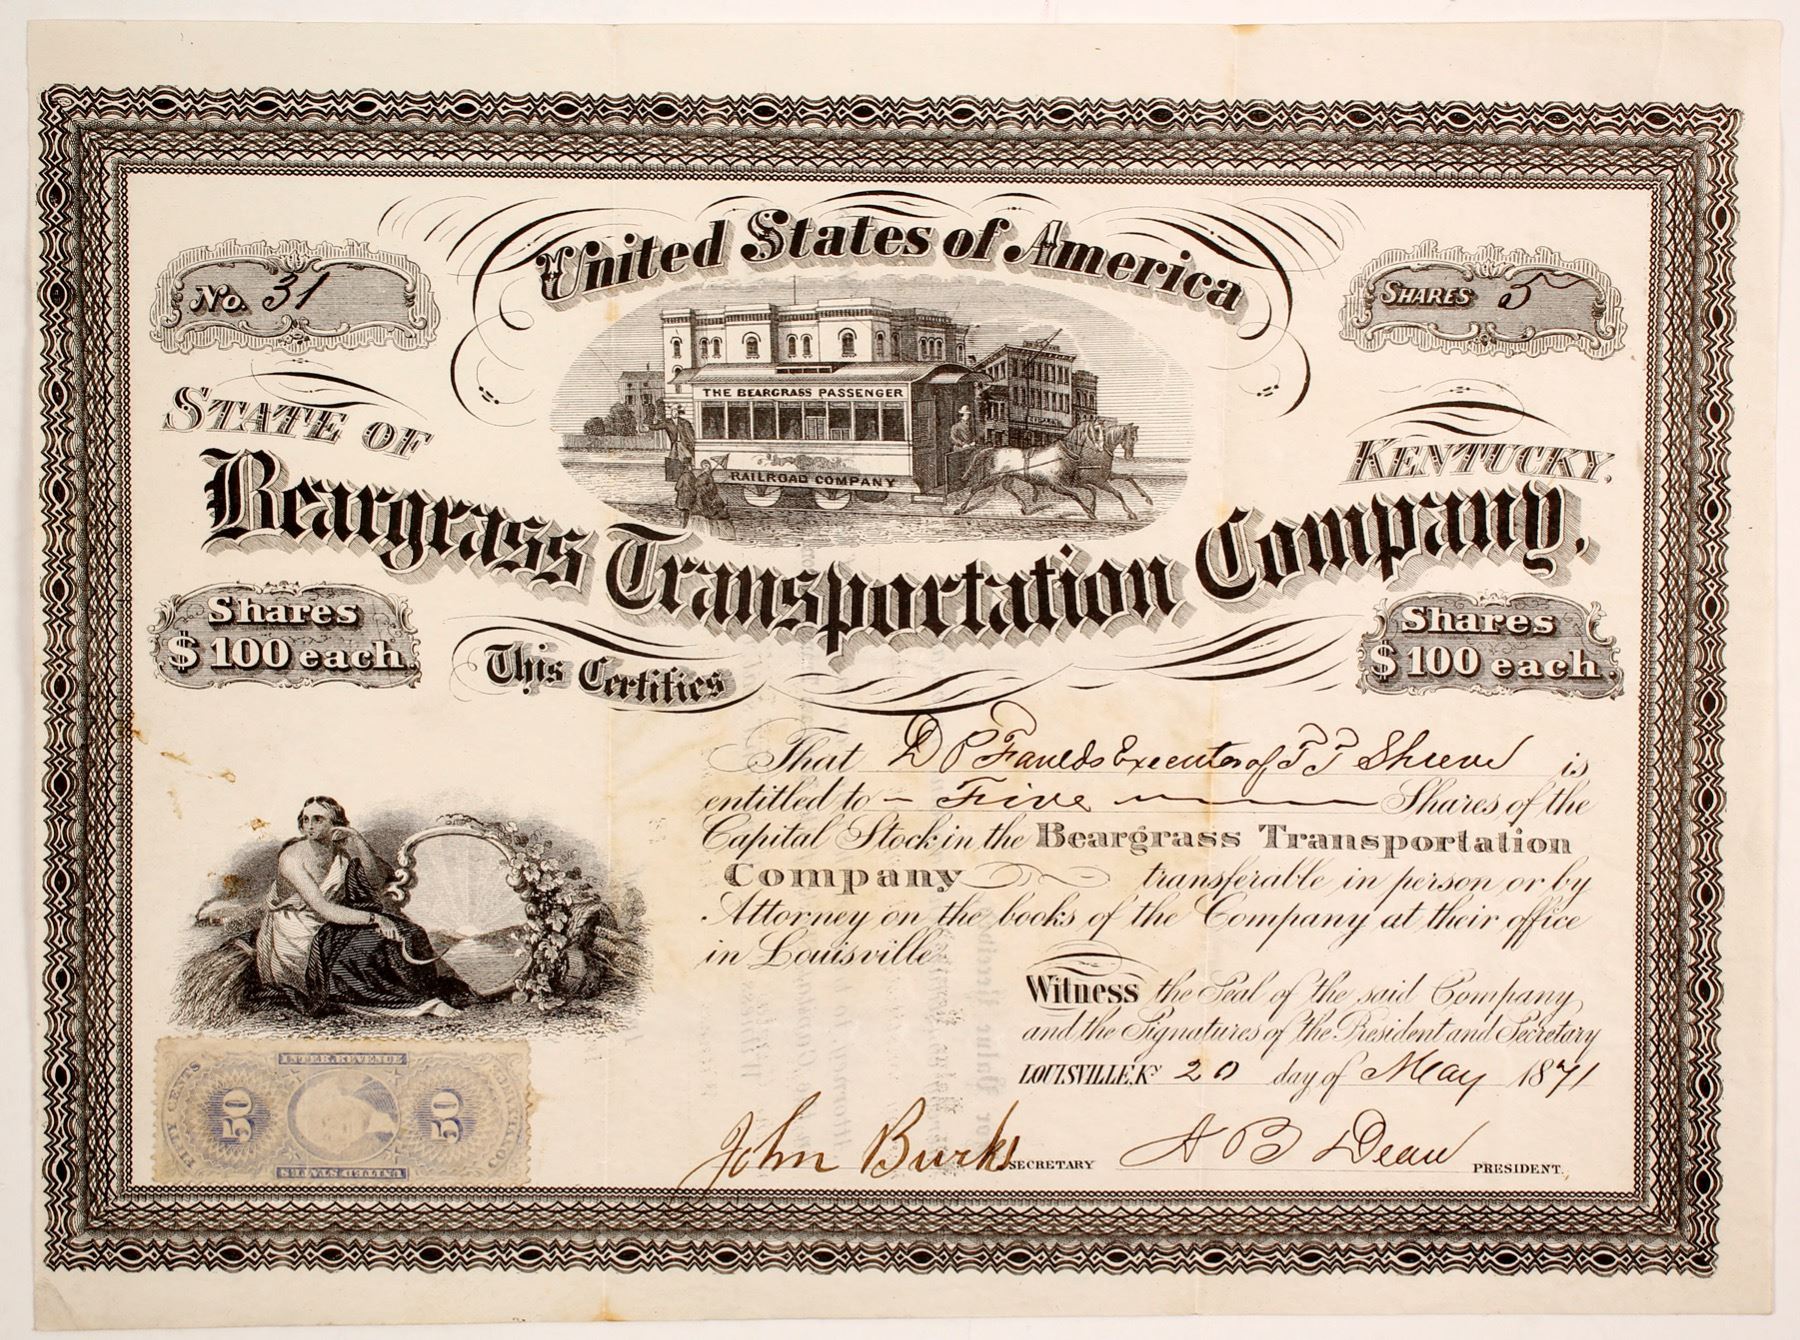 United States of America
No. 31
SHARES 5
THE BEARGRASS PASSENGER
RAILROAD COMPANY
STATE OF
KENTUCKY,
Beargrass Transportation Company,
Shares
$100 each.
Shares
$100 each.
This Certifies
That D P Faulds Executor of T T Shreve is
entitled to – Five – Shares of the
Capital Stock in the Beargrass Transportation
Company transferable in person or by
Attorney on the books of the Company at their office
in Louisville
Witness the Seal of the said Company
and the Signatures of the President and Secretary
LOUISVILLE, Ky 20 day of May 1871
INTER. REVENUE
FIFTY CENTS
50
50
UNITED STATES
John Burks SECRETARY
A B Dean PRESIDENT.